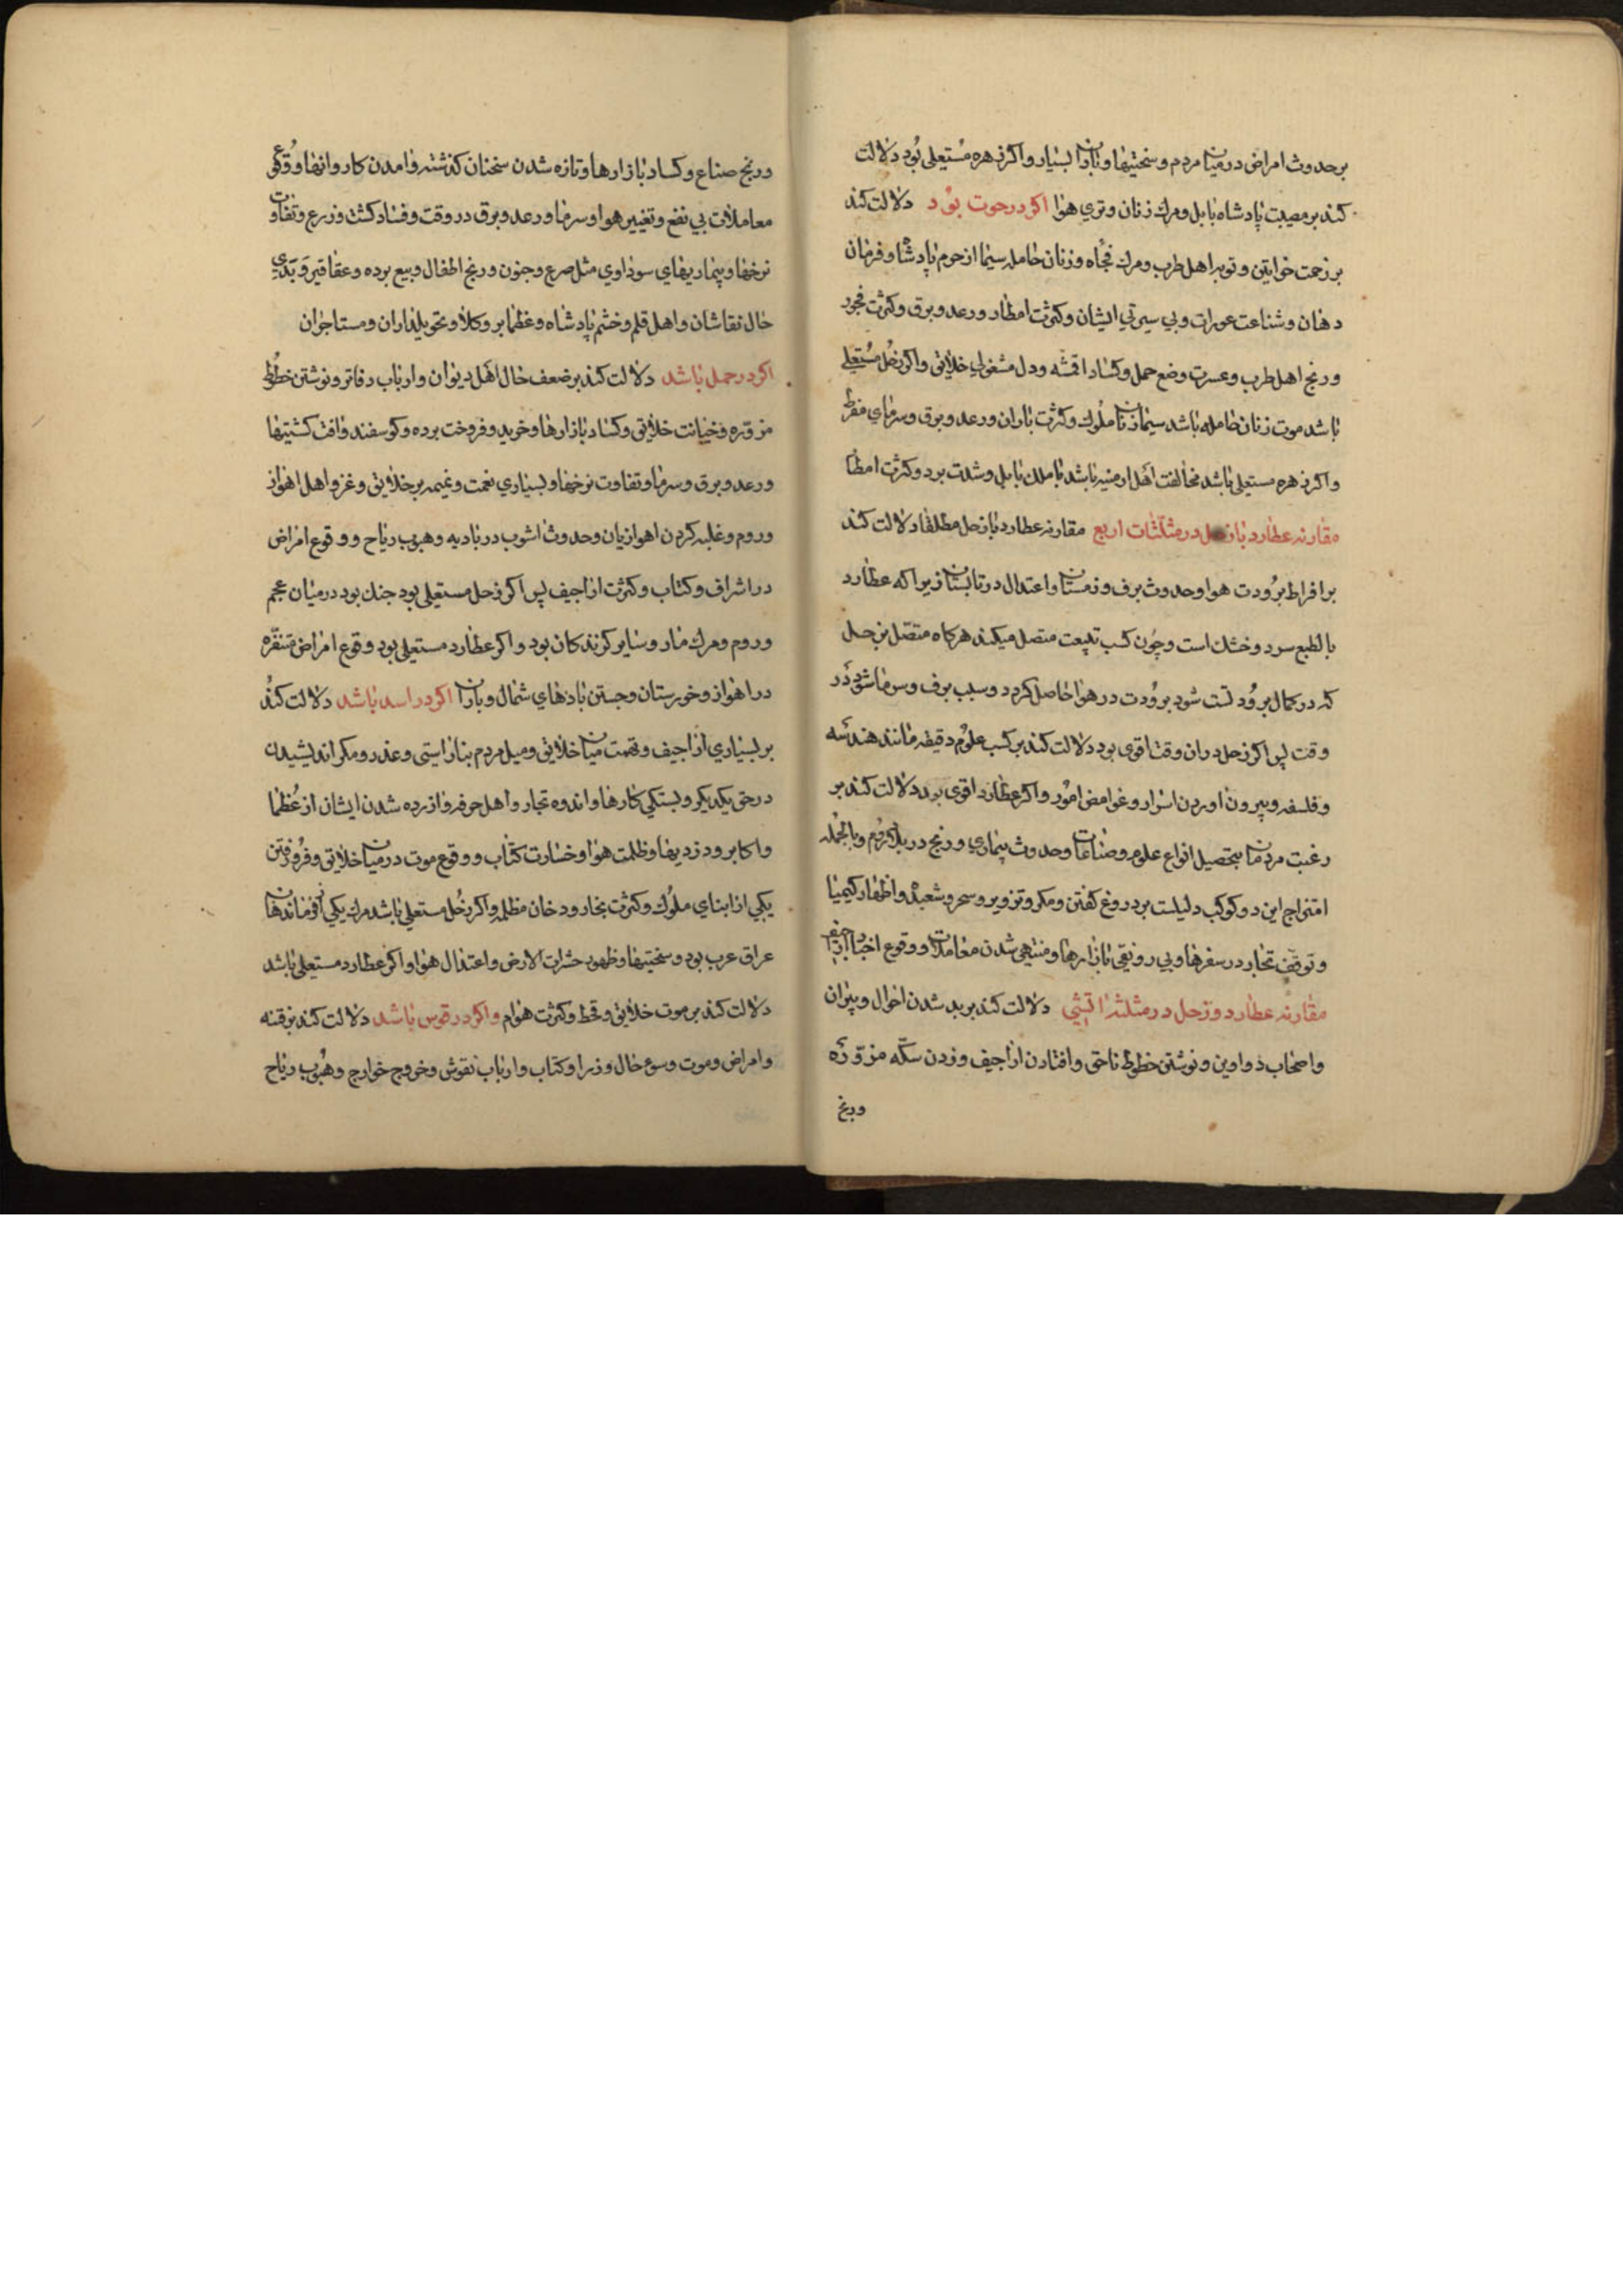 بر حدوث امراض در میان مردم و سختیها و باران بسیار و اکر زهره مستعلی بود دلالت
کند بر مصیبت پادشاه بابل و مرك زنان و تری هوا اکر در حوت بود دلالت کند
بر زحمت خواتین و توبه اهل طرب و مرك فجاه و زنان حامله سیما از حرم پادشاه و فرمان
دهان و شناعت عورات و بی سیرتی ایشان و کثرت امطار و رعد و برق و کثرت فجور
و رنج اهل طرب و عسرت وضع حمل و کساد اقمشه و دل مشغولی خلایق و اکر زحل مستعلی
باشد موت زنان حامله باشد سیما زنان ملوك و کثرت باران و رعد و برق و سرمای مفرط
و اکر زهره مستعلی باشد مخالفت اهل ارمنیه باشد با ملك بابل و شدت برد و کثرت امطا
مقارنه عطارد با زحل در مثلثات اربع مقارنه عطارد با زحل مطلقا دلالت کند
بر افراط برودت هوا و حدوث برف و زمستان و اعتدال در تابستان زیرا که عطارد
بالطبع سرد و خشك است و چون کسب طبیعت متصل میکند هرکاه متصل بزحل
که در کمال برودتست شود برودت در هوا حاصل کردد و سبب برف و سرما شود در
وقت پس اکر زحل در ان وقت اقوی بود دلالت کند بر کسب علوم دقیقه مانند هندسه
و فلسفه و بیرون اوردن اسرار و غوامض امور و اکر عطارد اقوی بود دلالت کند بر
رغبت مردمان بتحصیل انواع علوم و صناعات و حدوث بیماری و رنج در بلاد روم و بالجمله
امتزاج این دو کوکب دلیلست بر دروغ کفتن و مکر و تزویر و سحر و شعبده و اظهار کیمیا
و توقف تجار در سفرها و بی رونقی بازارها و منتهی شدن معاملات و وقوع اخبار
مقارنه عطارد و زحل در مثلثه اتشی دلالت کند بر بد شدن احوال وپیران
و اصحاب دواوین و نوشتن خطوط ناحق و افتادن اراجیف و زدن سکه مزوره
ورنج
و رنج صناع و کساد بازارها و تازه شدن سخنان کذشته و امدن کاروانها و وقوع
معاملات بی نفع و تغییر هوا و سرما و رعد و برق در وقت و فساد کشت و زرع و تفاوت
نرخها و بیماریهای سوداوی مثل صرع و جنون و رنج اطفال و بیع برده و عقاقیر و بدی
حال نقاشان و اهل قلم و خشم پادشاه و عظما بر وکلا و تحویلداران و مستاجران
اکر در حمل باشد دلالت کند بر ضعف حال اهل دیوان و ارباب دفاتر و نوشتن خطوط
مزوره و خیانت خلایق و کساد بازارها و خرید و فروخت برده و کوسفند و افت کشتیها
و رعد و برق و سرما و تفاوت نرخها و بسیاری تهمت و نمیمه بر خلایق و غزو اهل اهواز
و روم و غلبه کردن اهوازیان و حدوث اشوب در بادیه و هبوب ریاح و وقوع امراض
در اشراف و کتاب و کثرت اراجیف پس اکر زحل مستعلی بود جنك بود در میان عجم
و روم و مرك مار و سایر کزندکان بود و اکر عطارد مستعلی بود وقوع امراض
در اهواز و خورستان و جستن بادهای شمال و باران اکر در اسد باشد دلالت کند
بر بسیاری اراجیف و تهمت میان خلایق و میل مردم بناراستی و عذر و مکر اندیشیدن
در حق یکدیکر و بستکی کارها و اندوه تجار و اهل حرفه و ازرده شدن ایشان از عظما
و اکابر و دزدیها و ظلمت هوا و خسارت کتاب و وقوع موت در میان خلایق و فرو رفتن
یکی از ابنای ملوك و کثرت بخار و دخان مظلمه و اکر زحل مستعلی باشد مرك یکی از فرماندهان
عراق عرب بود و سختیها و ظهور حشرات الارض و اعتدال هوا و اکر عطارد مستعلی باشد
دلالت کند بر موت خلایق و قحط و کثرت هوام و اکر در قوس باشد دلالت کند بر فتنه
و امراض و موت و سوء حال وزرا و کتاب و ارباب نقوش و خروج خوارج و هبوب ریاح